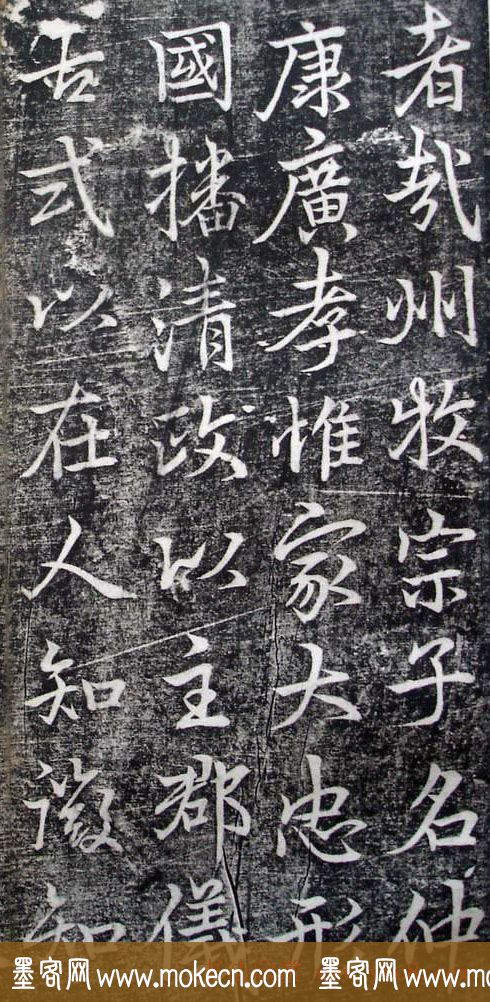 者哉州牧宗子名仲
康廣孝惟家大忠形
國播清政以主郡儀
古式以在人知徵知
墨客网 www.mokecn.com 墨客网 www.mokecn.com